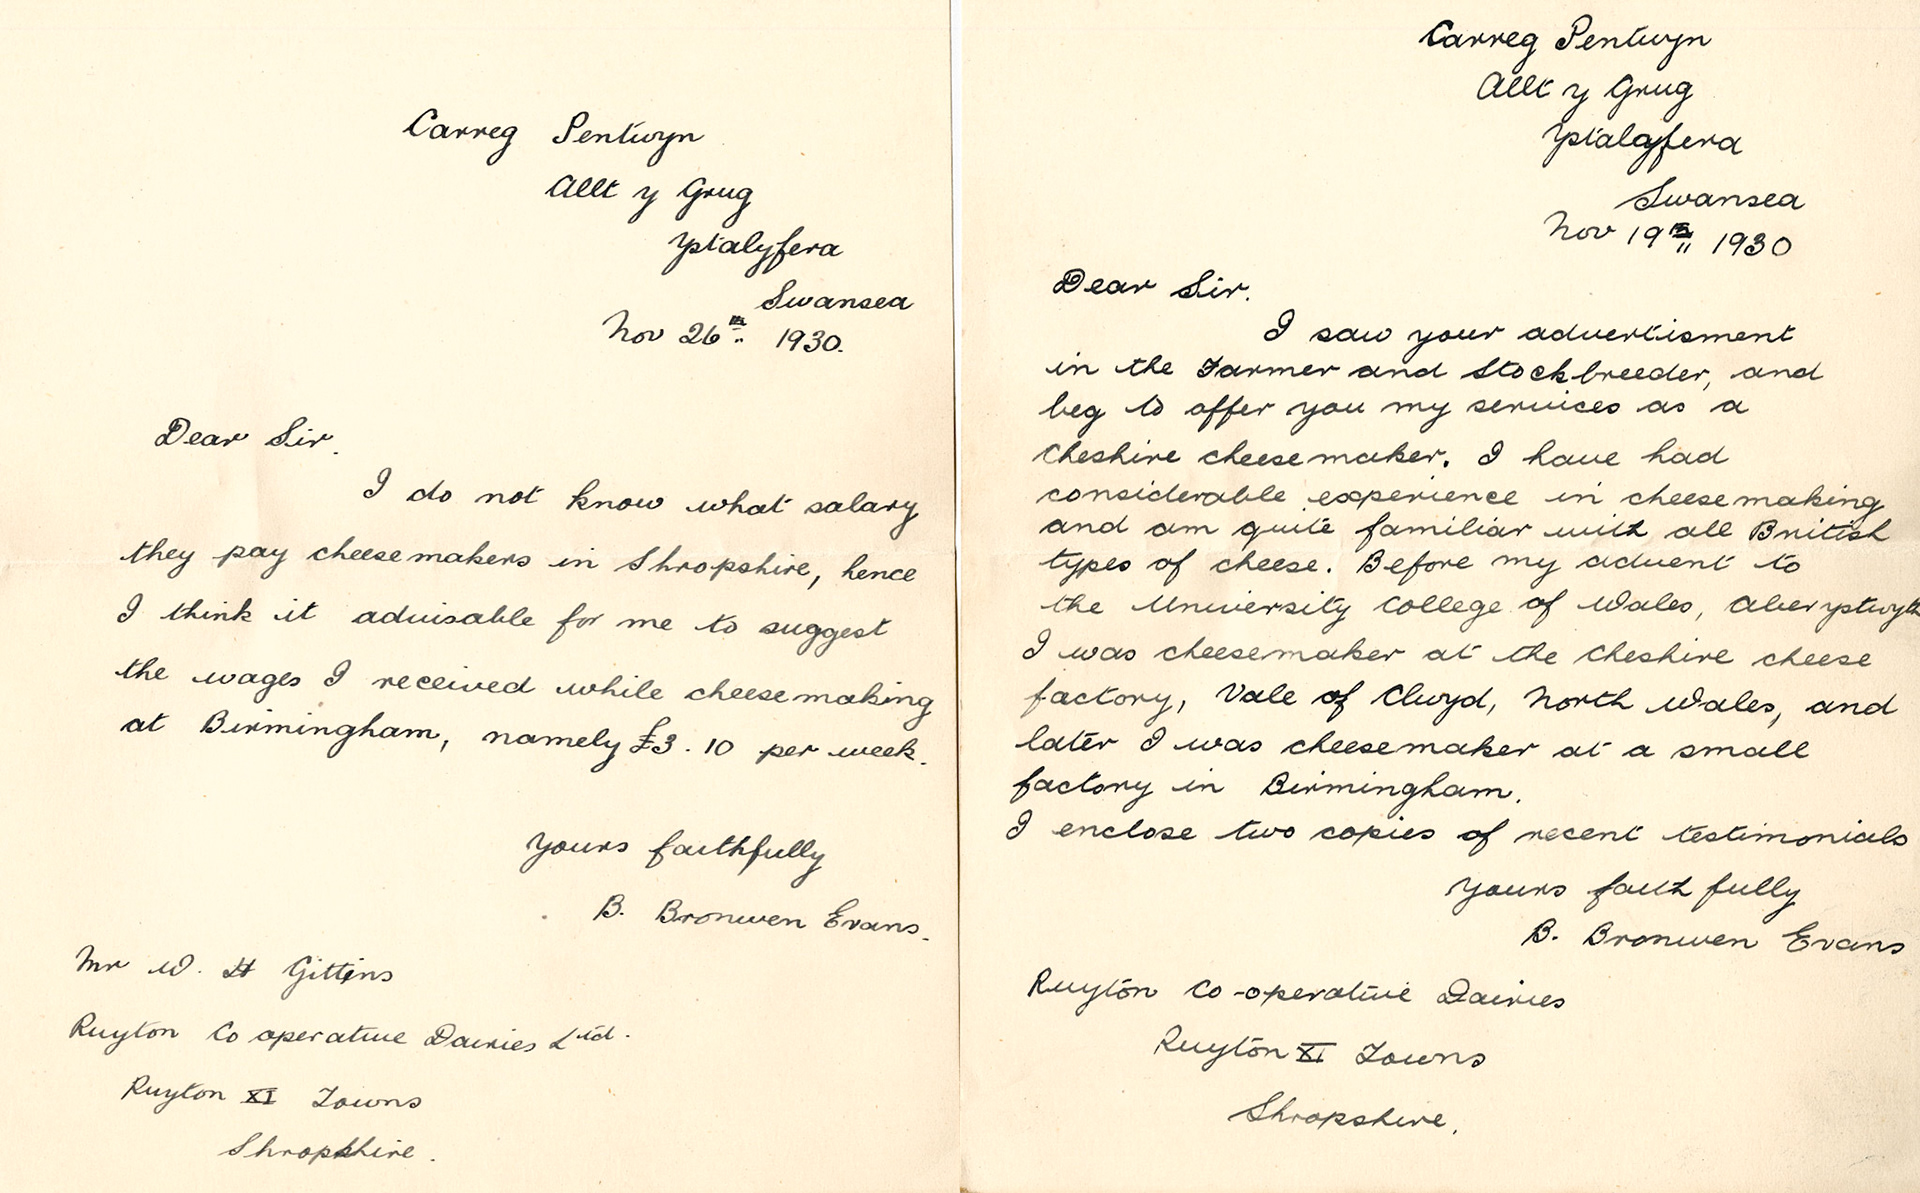 Carreg Pentwyn
Allt y Grug
Ystalyfera
Swansea
Nov 26th 1930.
Dear Sir.
I do not know what salary
they pay cheesemakers in Shropshire, hence
I think it advisable for me to suggest
the wages I received while cheesemaking
at Birmingham, namely £3.10 per week.
Yours faithfully
B. Bronwen Evans.
Mr W. H Gittins
Ruyton Co operative Dairies Ltd.
Ruyton XI Towns
Shropshire.
Carreg Pentwyn
Allt y Grug
Ystalyfera
Swansea
Nov 19th 1930
Dear Sir.
I saw your advertisment
in the Farmer and Stockbreeder, and
beg to offer you my services as a
Cheshire cheesemaker. I have had
considerable experience in cheesemaking
and am quite familiar with all British
types of cheese. Before my advent to
the University College of Wales, Aberystwyth
I was cheesemaker at the Cheshire cheese
factory, Vale of Clwyd, North Wales, and
later I was cheesemaker at a small
factory in Birmingham.
I enclose two copies of recent testimonials
Yours faithfully
B. Bronwen Evans
Ruyton Co-operative Dairies
Ruyton XI Towns
Shropshire.